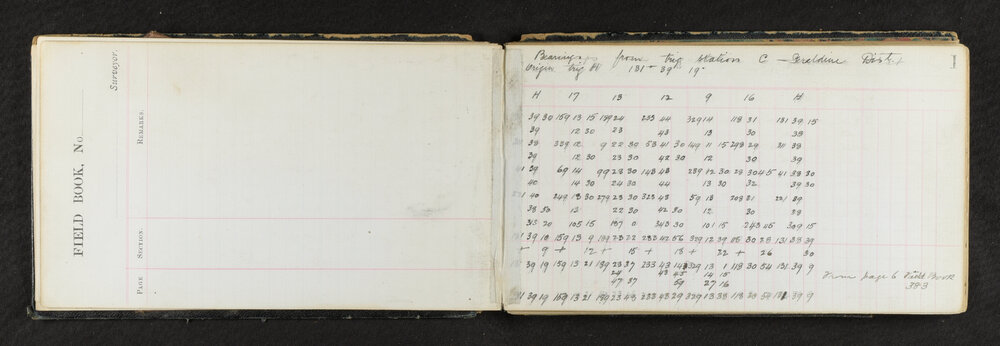 FIELD BOOK, No.
Surveyor.
PAGE SECTION. REMARKS.
1
Bearings from trig station C - Geraldine Dist
Origin trig H 131 - 39 - 19
H 17 13 12 9 16 H
39 30 159 13 15 189 24 233 44 329 14 118 31 131 39 15
39 12 30 23 43 13 30 38
38 339 12 9 22 39 53 41 30 149 11 15 298 29 311 38
39 12 30 23 30 42 30 12 30 39
41 39 69 14 99 23 30 143 43 239 12 30 29 30 45 41 38 30
40 14 30 24 30 44 13 30 32 39 30
40 249 13 30 279 23 30 323 43 59 13 208 31 221 39
38 30 12 22 30 42 30 12 30 38
313 20 105 15 187 0 343 30 101 15 243 45 309 15
39 18 159 13 9 189 23 22 233 42 56 329 12 39 118 30 28 131 38 39
+ 9 + 12 + 15 + 18 + 22 + 26 30
39 19 159 13 21 189 23 37 233 43 14 329 13 1 118 30 54 131 39 9
24 43 45 14 15
47 37 59 27 16
39 19 159 13 21 189 23 48 233 43 29 329 13 38 118 30 54 131 39 9
From page 6 Field Book
383